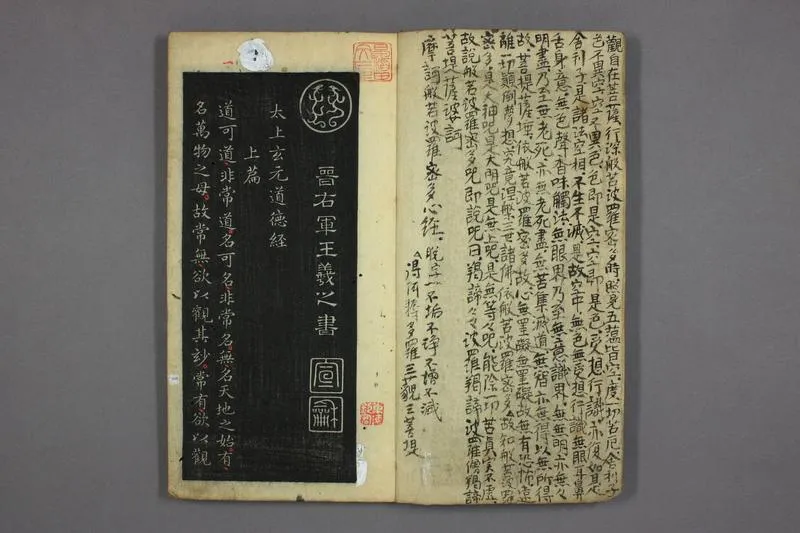 觀自在菩薩行深般若波羅蜜多時照見五蘊皆空度一切苦厄舍利子
色不異空空不異色色即是空空即是色受想行識亦復如是
舍利子是諸法空相不生不滅是故空中無色無受想行識無眼耳鼻
舌身意無色聲香味觸法無眼界乃至無意識界無無明亦無々
明盡乃至無老死亦無老死盡無苦集滅道無智亦無得以無所得
故菩提薩埵依般若波羅蜜多故心無罣礙無罣礙故無有恐怖遠
離一切顛倒夢想究竟涅槃三世諸佛依般若波羅密多故知般若波羅
密多是大神呪是大明呪是無上呪是無等々呪能除一切苦真実不虚
故説般若波羅密多呪即説呪曰羯諦々々波羅羯諦波羅僧羯諦
菩提薩婆訶
摩訶般若波羅密多心経 脱字 不垢不浄不増不減
得阿耨多羅三藐三菩提
晉右軍王羲之書
宣
龢
太上玄元道德経
上篇
道可道非常道名可名非常名無名天地之始有
名萬物之母故常無欲以觀其妙常有欲以觀